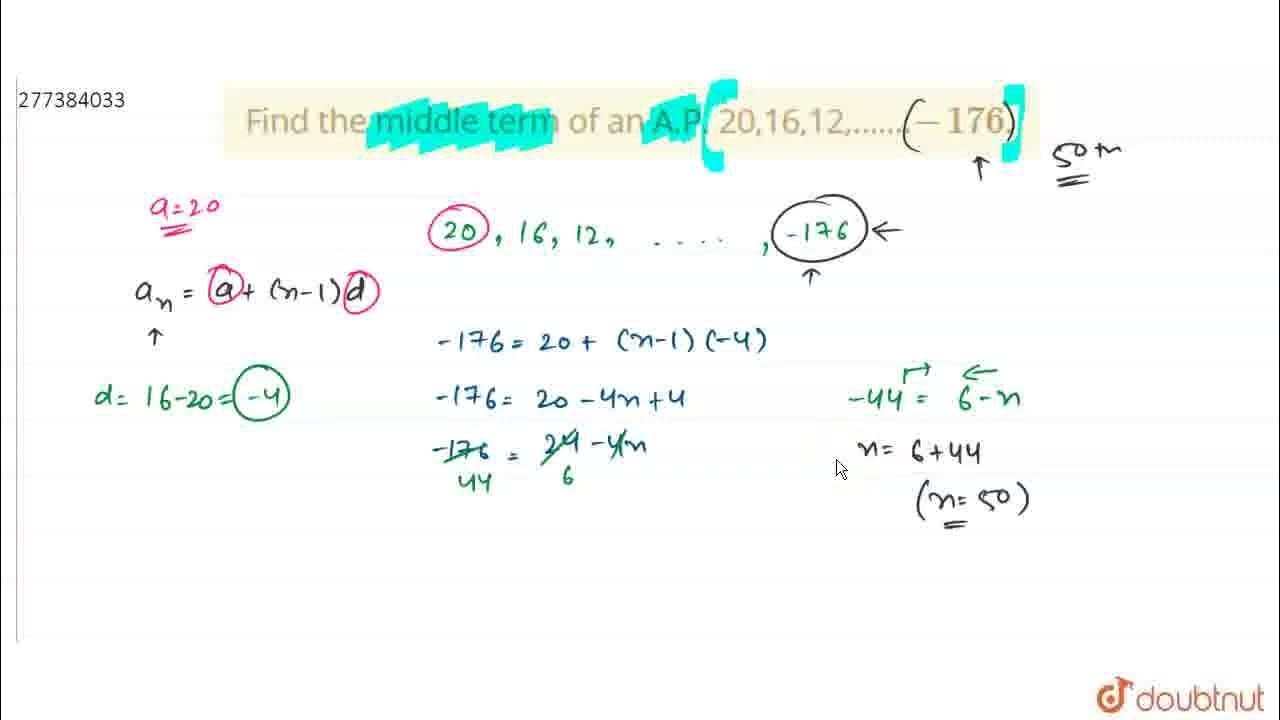 277384033
Find the middle term of an A.P. 20,16,12,.......(-176)
50th
a=20
20, 16, 12, ...., -176
aₙ = a + (n-1) d
-176 = 20 + (n-1) (-4)
d = 16-20 = -4
-176 = 20 - 4n + 4
-44 = 6-n
-176 = 24 - 4n
44 6
n = 6+44
(n = 50)
doubtnut